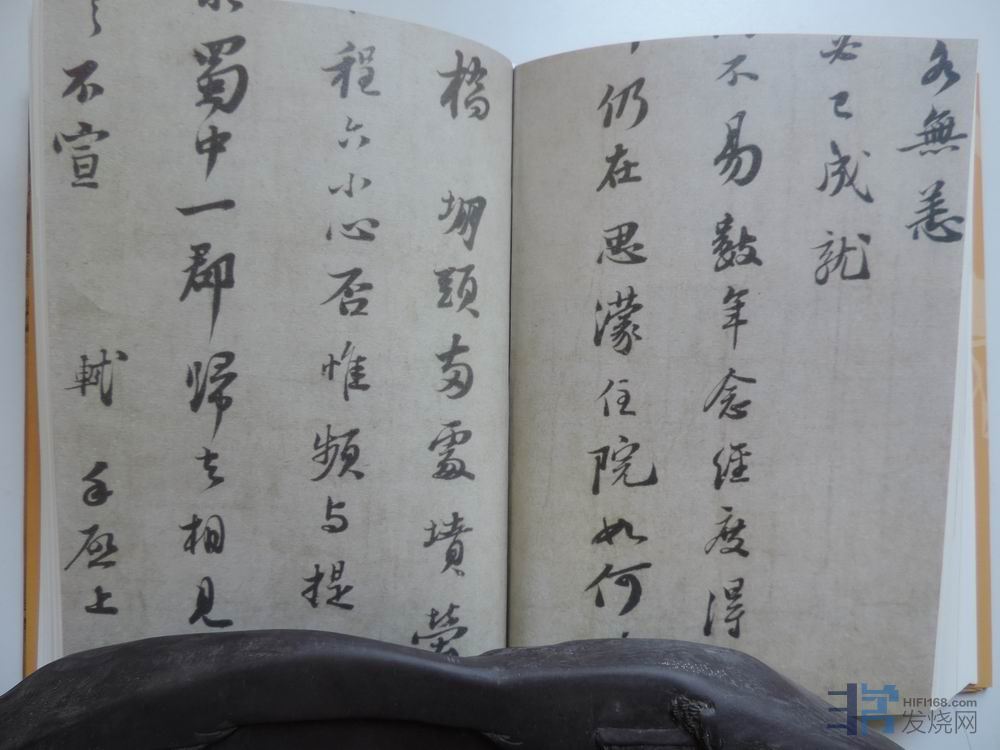 各無恙
必已成就
不易數年念經度得
仍在思濛住院如何
橋 塴頭兩處墳塋
程六小心否惟頻與提
蜀中一郡歸去相見
不宣 軾 手啟上
HIFI168.com
发烧网